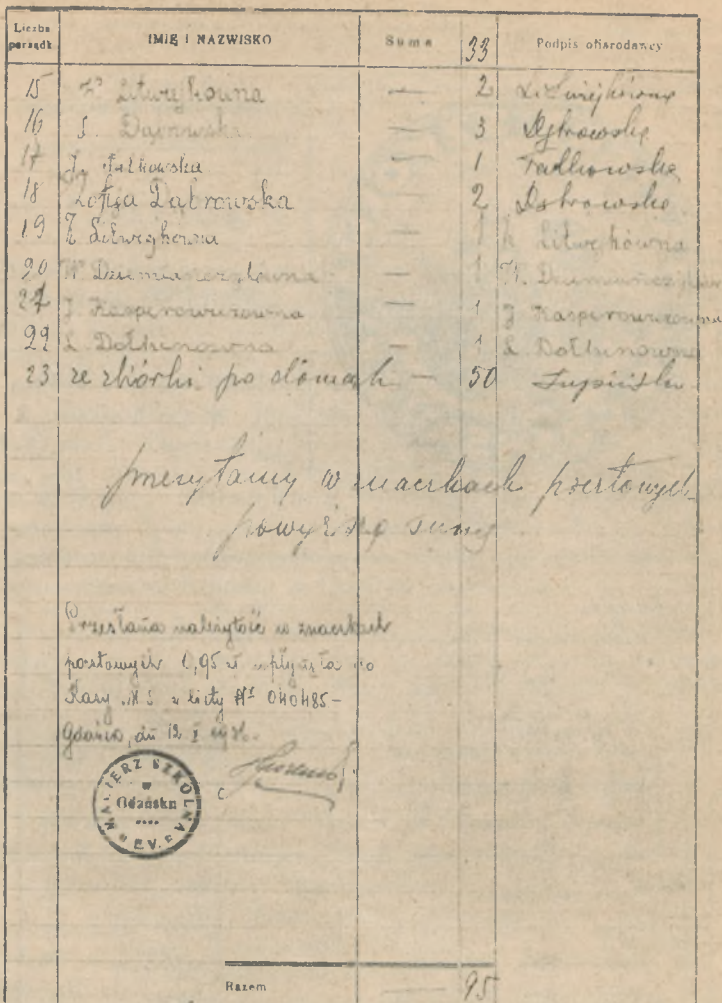 Liczba porządk. IMIĘ I NAZWISKO Suma 33 Podpis ofiarodawcy
15 Litwejkówna — 2
16 S. Dąbrowska — 3 Dąbrowska
17 J. Falkowska 1 Falkowska
18 Zofija Dąbrowska — 2 Dąbrowska
19 Litwejkówna — 1 Litwejkówna
20 W. Dziemiańczykówna — 1 W.
21 J. Kasperowiczówna — 1 J. Kasperowiczówna
22 L. Dołhunówna — 1 L. Dołhunówna
23 ze zbiórki po domach — 50
przesyłamy w znaczkach pocztowych
powyższą sumę
Przesłana należytość w znaczkach
pocztowych 1,95 zł wpłynęła do
Kasy M S z listy № 040485 –
Gdańsk, dn 12 I
MACIERZ SZKOLNA w Gdańsku E.V.
Razem — 95